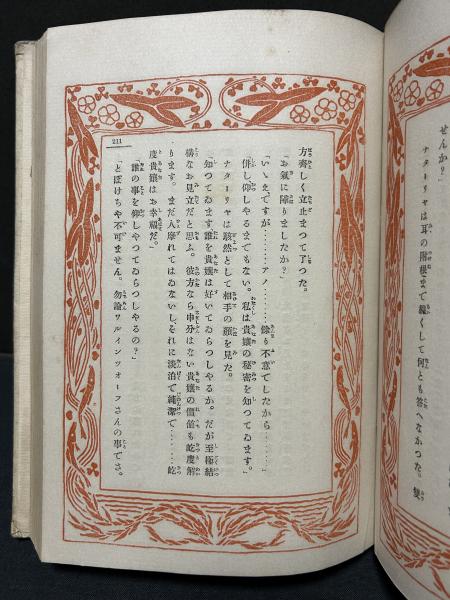 せんか？」
ナターリヤは耳の附根まで赧くして何とも答へなかつた。變
211
方齊しく立止まつて了つた。
「お氣に障りましたか？」
「いゝえ、ですが………アノ………餘り不意でしたから………」
「併し仰しやるまでもない。私は貴孃の秘密を知つてゐます。」
ナターリヤは駭然として相手の顏を見た。
「知つてゐます誰を貴孃は好いてゐらつしやるか。だが至極結
構なお見立だと思ふ。彼方なら申分はない貴孃の價値も屹度解
ります。まだ人摩れてはゐないし、それに淡泊で純潔で………屹
度貴孃はお幸福だ。」
「誰の事を仰しやつてゐらつしやるの？」
「とぼけちや不可ません。勿論ワルインツォーフさんの事でさ。